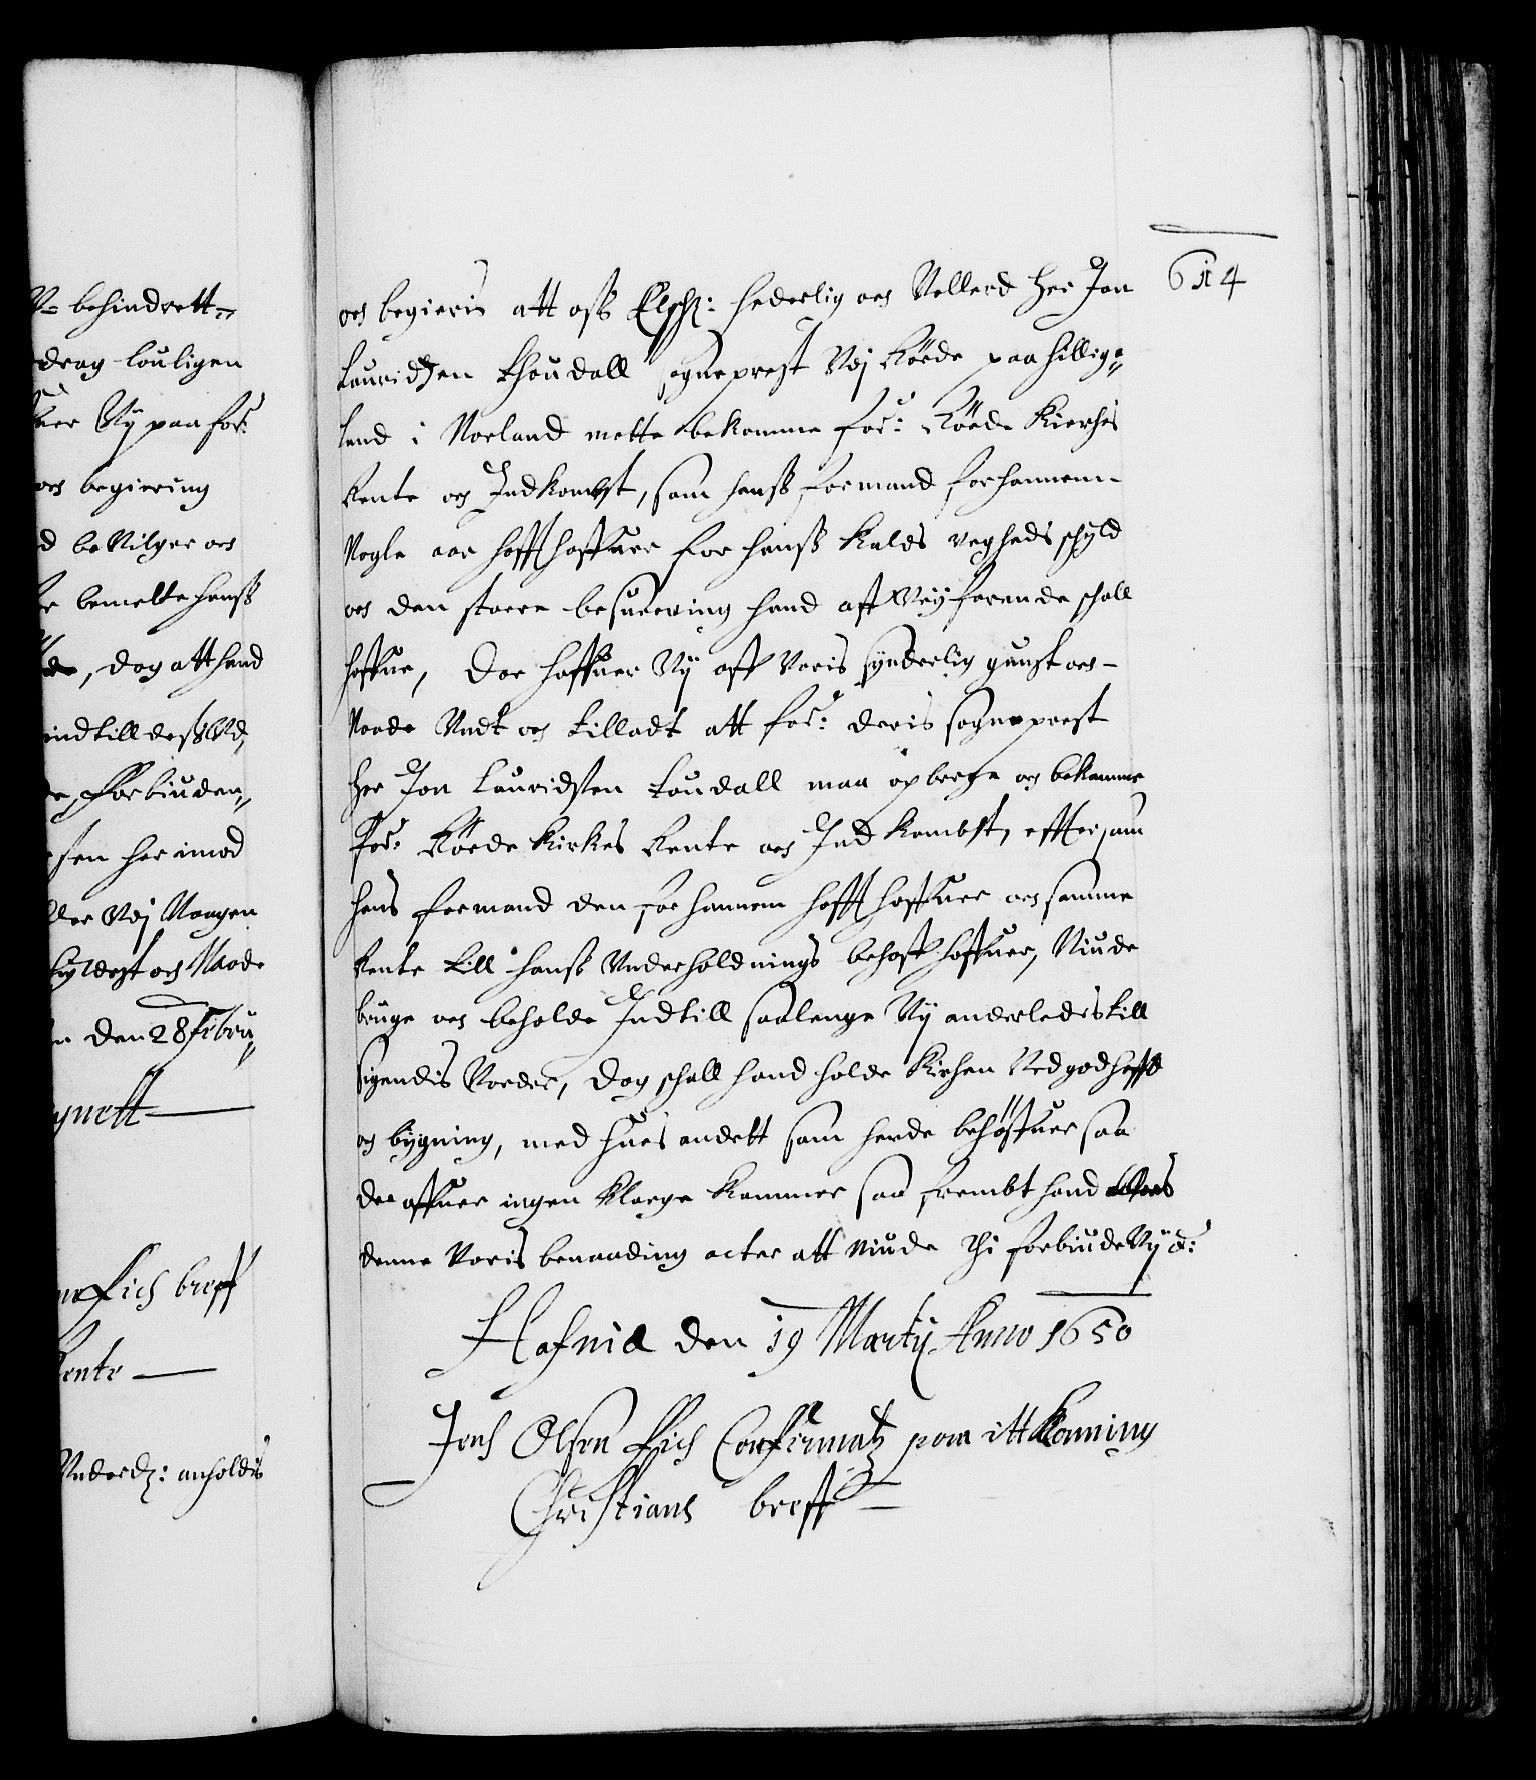 V- behindrett-
drag louligen
Vy paa for:
och begiering
d beVilger och
bemelte hanss
, dog att hand
indtill dess Vd,
forbiuden
her imod
Vdj Naagen
och Naade
den 28 Febru
gnett
Fich breff
Rente
Underdz: anholdis
614
och begieris att oss Elschl: hederlig och Vellerd Her Jon
Lauridssen Thoudall sogneprest Vdj Röede paa Hillige
land i Norland motte bekomme for: Röede Kierches
Rente och Indkombst, som hanss formand for hannem
Nogle aar hafft haffuer for hanss Kalds ringheds schyld
och den stoere besuering hand aff Veyfarende schall
haffue, Da haffuer Vy aff Voris synderlig gunst och
Naade Undt och tilladt att for: deris sogneprest
Her Jon Lauridssen Toudall maa opberge och bekomme
for: Röede Kirkes Rente och Indkombst, efftersom
hans formand den for hannem hafft haffuer och samme
Rente till hanss Underholdnings behoff haffuer, Niude
bruge och beholde Indtill saalenge Vy anderledis till
sigendis Vorder, dog schall hand holde Kirchen Ved god heffd
og bygning, med hues andett som herde behöffuer saa
der offuer ingen Klage kommer saa frembt hand ellers
denne Voris benaading acter att Niude Thi forbiude Vy &:
Hafniæ den 19 Martij Anno 1650
Jens Olsen Fich Confirmatz paa itt Konning
Christians breff